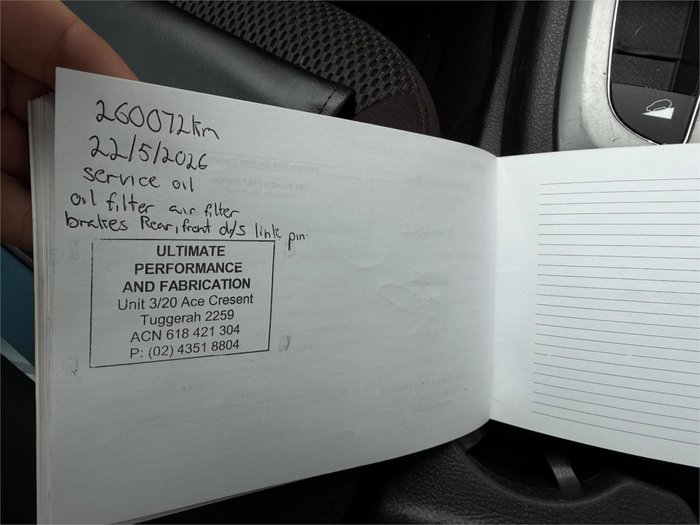 260072km
22/5/2026
service oil
oil filter air filter
brakes Rear, front d/s link pin
ULTIMATE
PERFORMANCE
AND FABRICATION
Unit 3/20 Ace Cresent
Tuggerah 2259
ACN 618 421 304
P: (02) 4351 8804